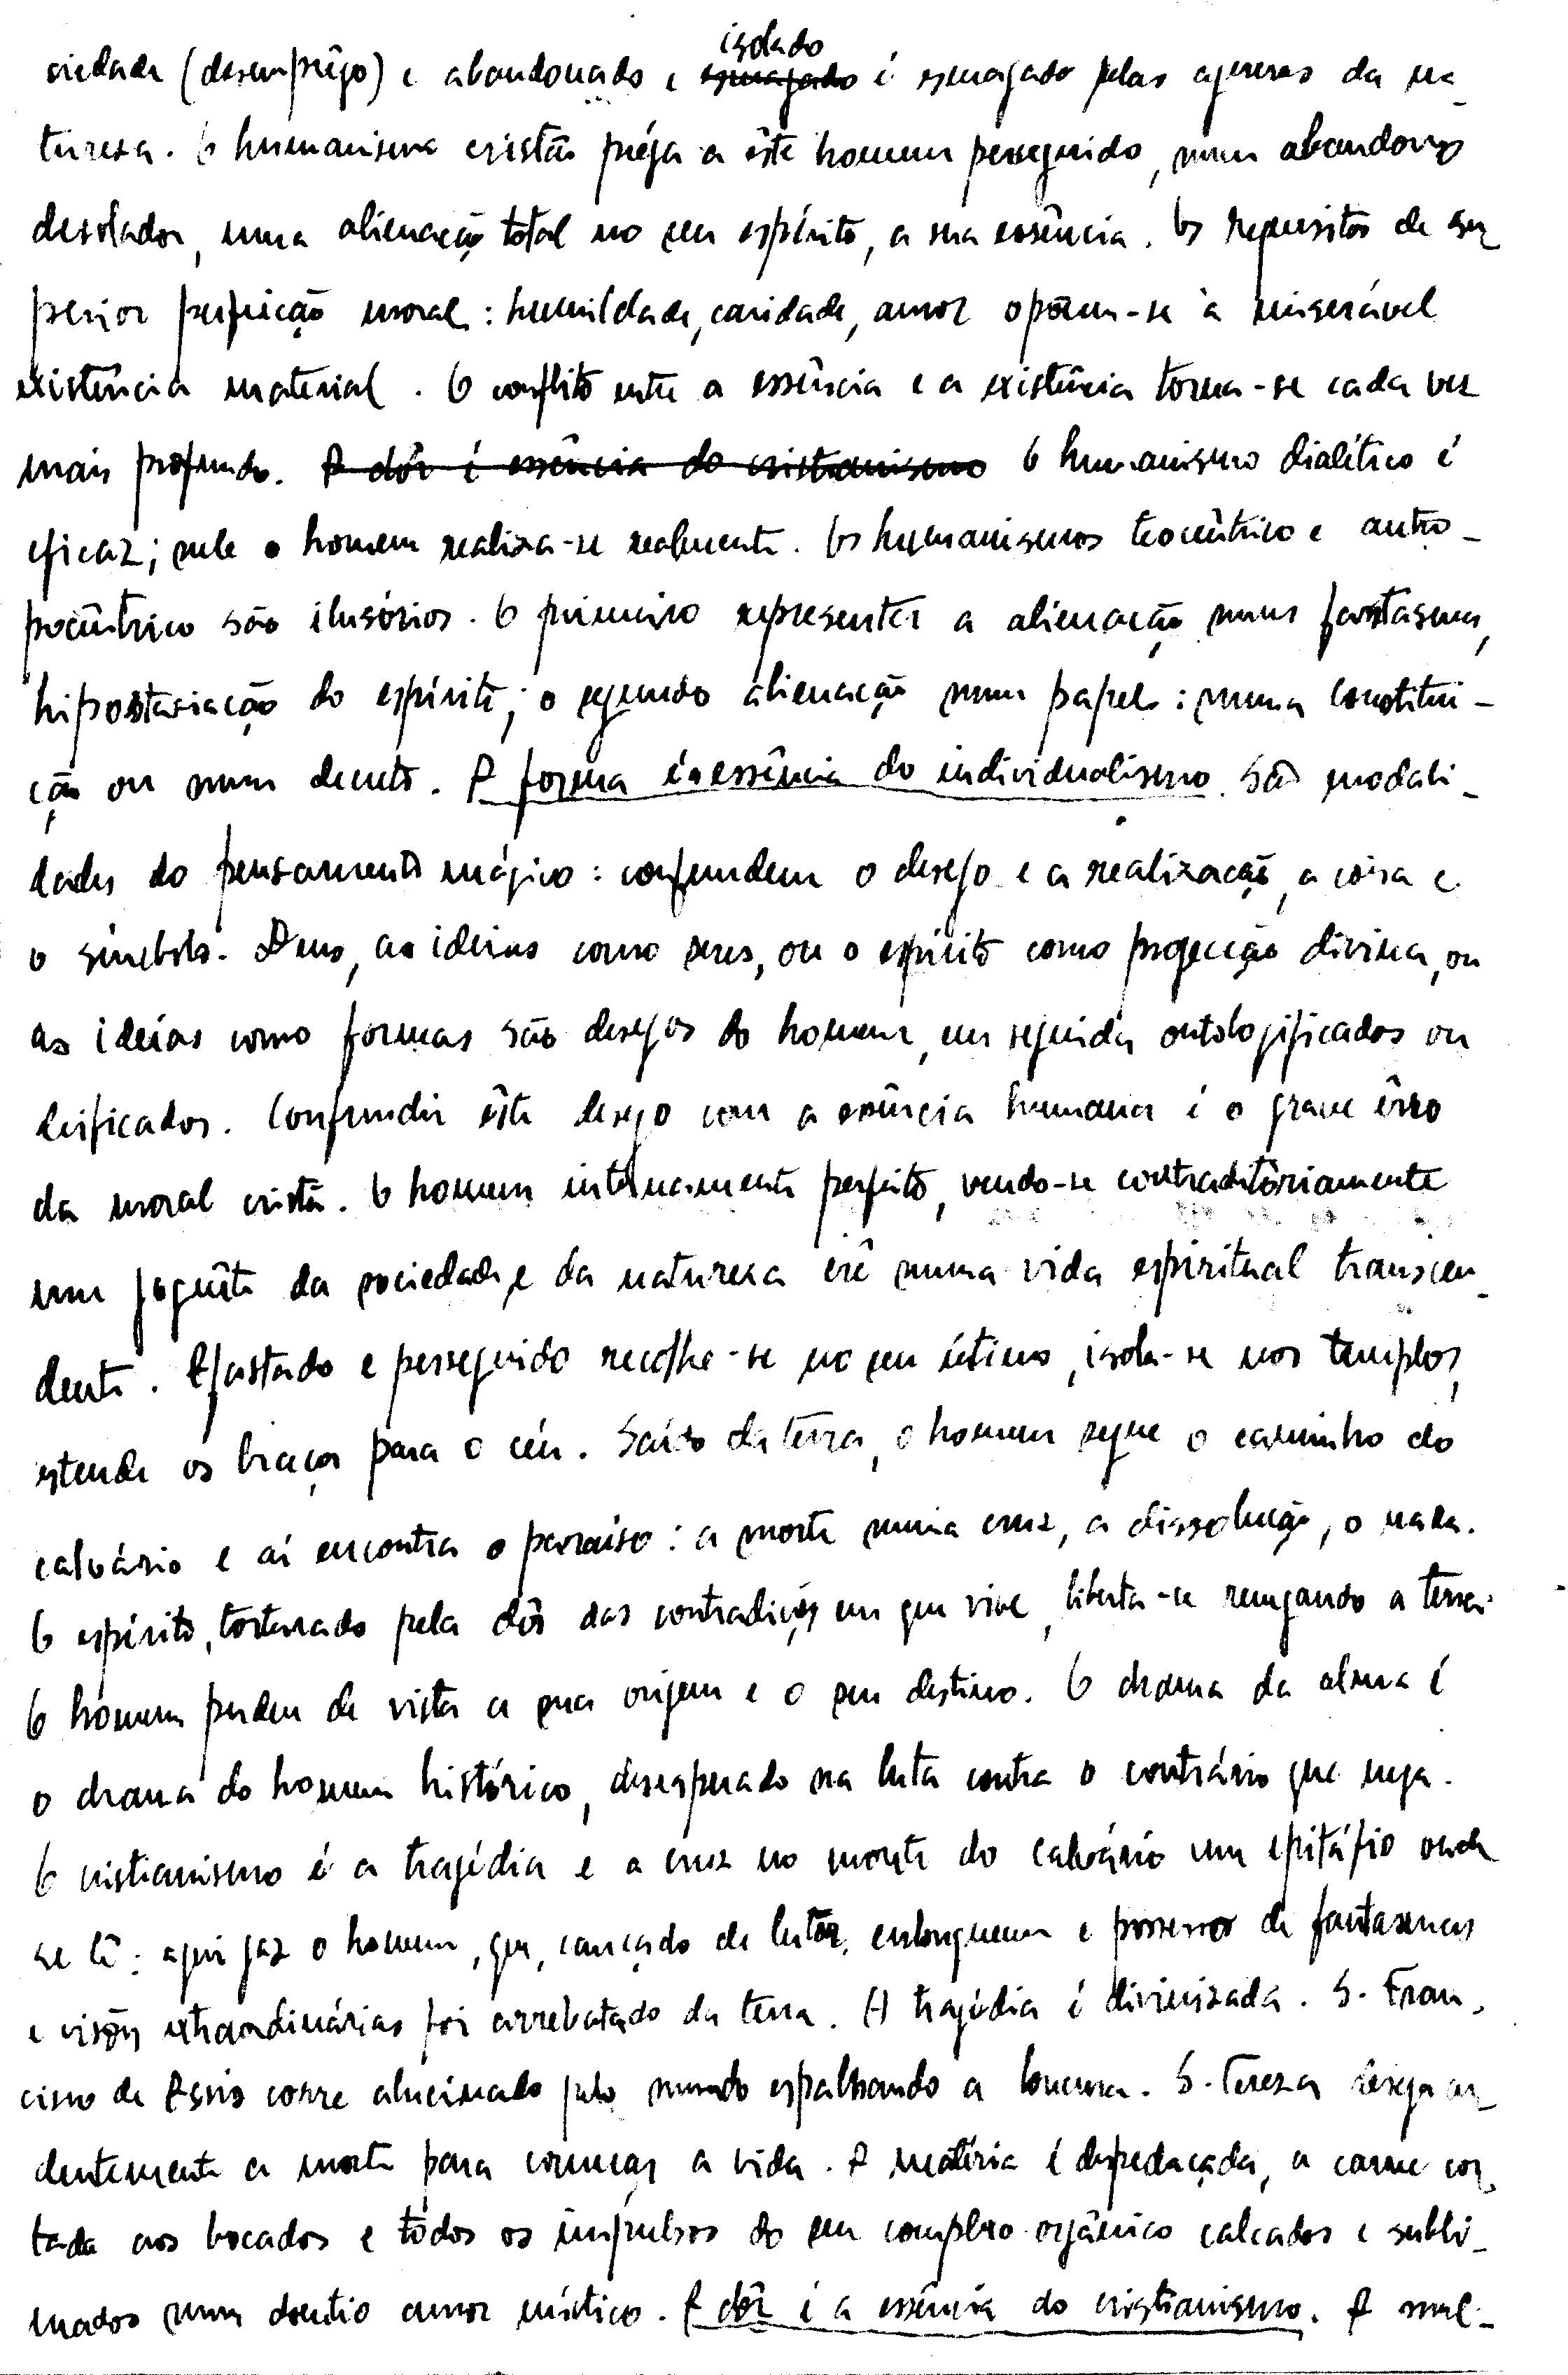 isolado
ciedade (desemprêgo) e abandonado e esmagado é esmagado pelas agruras da na-
tureza. O humanismo cristão préga a êste homem perseguido, num abandono
desolador, uma alienação total no seu espírito, a sua essência. Os requisitos de su-
perior perfeição moral: humildade, caridade, amor opõem-se à miserável
existência material. O conflito entre a essência e a existência torna-se cada vez
mais profundo. A dôr é essência do cristianismo O humanismo dialético é
eficaz; nele o homem realiza-se realmente. Os humanismos teocêntrico e antro-
pocêntrico são ilusórios. O primeiro representa a alienação num fantasma,
hipostasiação do espírito; o segundo alienação num papel: numa constitui-
ção ou num decreto. A forma é a essência do individualismo. São modali-
dades do pensamento mágico: confundem o desejo e a realização, a coisa e
o símbolo. Deus, as ideias como seres, ou o espírito como projecção divina, ou
as ideias como formas são desejos do homem, em seguida ontologificados ou
deificados. Confundir êste desejo com a essência humana é o grave êrro
da moral cristã. O homem internamente perfeito, vendo-se contraditòriamente
um joguête da sociedade e da natureza crê numa vida espiritual transcen-
dente. Afastado e perseguido recolhe-se no seu íntimo, isola-se nos templos,
estende os braços para o céu. Saído da terra, o homem segue o caminho do
calvário e aí encontra o paraíso: a morte numa cruz, a dissolução, o nada.
O espírito, torturado pela dôr das contradições em que vive, liberta-se renegando a terra.
O homem perdeu de vista a sua origem e o seu destino. O drama da alma é
o drama do homem histórico, desesperado na luta contra o contrário que nega.
O cristianismo é a tragédia e a cruz no monte do calvário um epitáfio onde
se lê: aqui jaz o homem, que, cançado de lutar, enlouqueceu e possesso de fantasmas
e visões extraordinárias foi arrebatado da terra. A tragédia é divinizada. S. Fran-
cisco de Assis corre alucinado pelo mundo espalhando a loucura. S. Tereza deseja ar-
dentemente a morte para começar a vida. A matéria é despedaçada, a carne cor-
tada aos bocados e todos os impulsos do seu complexo orgânico calcados e subli-
mados num doentio amor místico. A dôr é a essência do cristianismo. A mul-